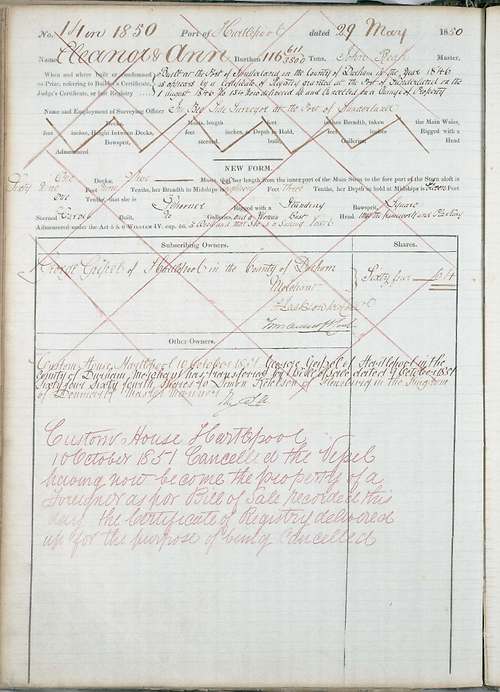 No. 14 in 1850 Port of Hartlepool dated 29 May 1850
Name Eleanor & Ann Burthen 116 611/3500 Tons, John Master,
When and where built or condemned as Prize, referring to Builder's Certificate, Judge's Certificate, or last Registry
Built at the Port of Sunderland in the County of Durham in the Year 1846
as appears by a Certificate of Registry granted at the Port of Sunderland on the
1 August 1846 No 154 now delivered up and Cancelled for a Change of Property
Name and Employment of Surveying Officer Tide Surveyor at the Port of Sunderland
Decks, Mast, length feet inches, Breadth taken the Main Wales,
feet inches, Height between Decks, feet inches, or Depth in Hold, feet inches, Rigged with a
Bowsprit, sterned, built, Galleries, Head
Admeasured
NEW FORM.
One Deck, Two Masts, that her length from the inner part of the Main Stem to the fore part of the Stern aloft is
Sixty nine Feet nine Tenths, her Breadth in Midships is eighteen Feet three Tenths, her Depth in hold at Midships is eleven Feet
one Tenths, that she is Schooner rigged with a Standing Bowsprit, Square
Sterned Carvel Built, No Galleries, and a Woman Bust Head
Admeasured under the Act 5 & 6 WILLIAM IV. cap. 56. and that She is a Sailing Vessel
Subscribing Owners. Shares.
George Gipsel of Hartlepool in the County of Durham Sixty four 64
Merchant
Other Owners.
Custom House, Hartlepool 10 October 1851 George Gipsel of Hartlepool in the
County of Durham, Merchant has transferred by Bill of Sale dated 9 October 1851
Sixty four Sixty fourth Shares to of in the Kingdom
of
Custom House Hartlepool
10 October 1851 Cancelled the Vessel
having now become the property of a
Foreigner as per Bill of Sale recorded this
day the Certificate of Registry delivered
up for the purpose of being cancelled